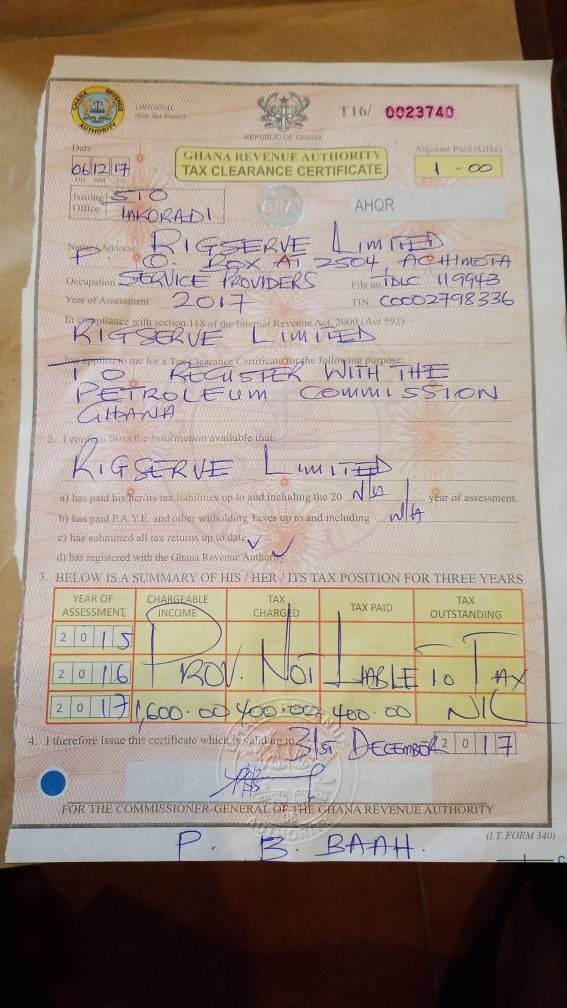 GHANA REVENUE AUTHORITY
ORIGINAL
(For Tax Payer)
REPUBLIC OF GHANA
T16/ 0023740
Date
06 12 17
GHANA REVENUE AUTHORITY
TAX CLEARANCE CERTIFICATE
Amount Paid (GH¢)
1 - 00
Issuing Office STO TAKORADI
GRA
AHQR
Name & Address RIGSERVE LIMITED
P. O. BOX AT 2504, ACHIMOTA
Occupation SERVICE PROVIDERS File no. IDLC 119943
Year of Assessment 2017 TIN. C0002798336
In compliance with section 118 of the Internal Revenue Act, 2000 (Act 592)
RIGSERVE LIMITED
has applied to me for a Tax Clearance Certificate for the following purpose:
TO REGISTER WITH THE
PETROLEUM COMMISSION
GHANA
2. I confirm from the information available that:
RIGSERVE LIMITED
a) has paid his/her/its tax liabilities up to and including the 20 N/A year of assessment.
b) has paid P.A.Y.E. and other witholding Taxes up to and including N/A
c) has submitted all tax returns up to date ✓
d) has registered with the Ghana Revenue Authority. ✓
3. BELOW IS A SUMMARY OF HIS / HER / ITS TAX POSITION FOR THREE YEARS
YEAR OF ASSESSMENT CHARGEABLE INCOME TAX CHARGED TAX PAID TAX OUTSTANDING
2015
2016 PROV. NOT LIABLE TO TAX
2017 1,600.00 400.00 400.00 NIL
4. I therefore issue this certificate which is valid up to 31st DECEMBER 2017
FOR THE COMMISSIONER-GENERAL OF THE GHANA REVENUE AUTHORITY
(I.T. FORM 340)
P. B. BAAH.